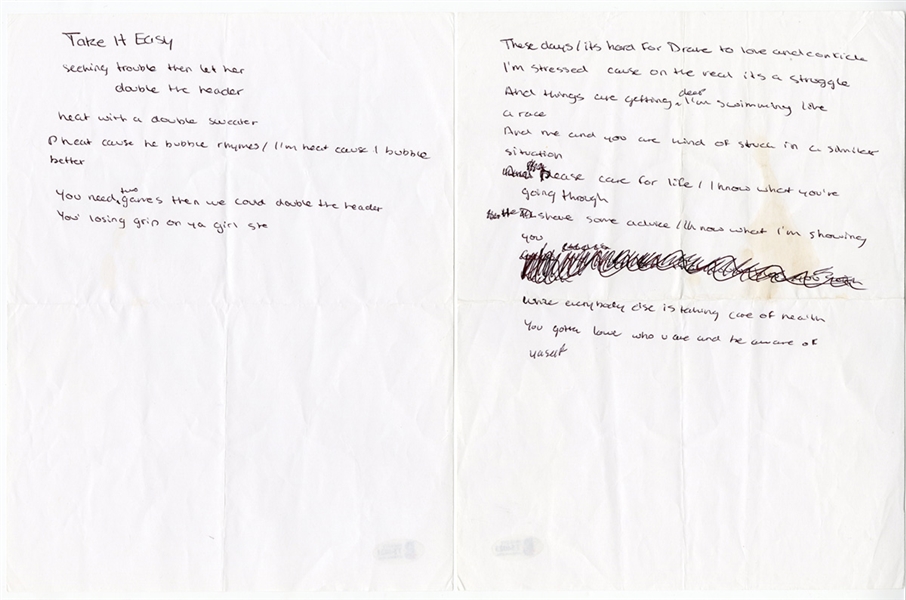 Take It Easy
seeking trouble then let her
double the header
heat with a double sweater
P heat cause he bubble rhymes / I'm heat cause I bubble
better
You need two games then we could double the header
You' losing grip on ya girl ste
These days / its hard for Drake to love and confide
I'm stressed cause on the real its a struggle
And things are getting deep I'm swimming like
a race
And me and you are kind of stuck in a similar
situation
Please care for life / I know what you're
going though
share some advice / I know what I'm showing
you
While everybody else is taking care of health
You gotta love who u are and be aware of
yaself